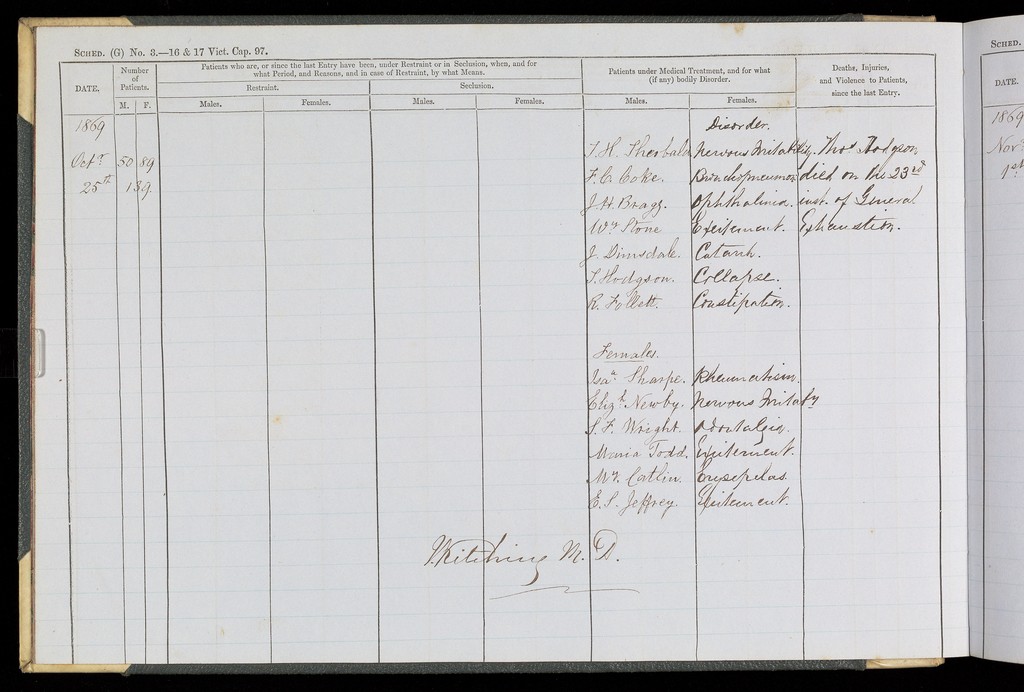 SCHED. (G) No. 3.—16 & 17 Vict. Cap. 97.
DATE.
Number of Patients.
M. F.
Patients who are, or since the last Entry have been, under Restraint or in Seclusion, when, and for
what Period, and Reasons, and in case of Restraint, by what Means.
Restraint. Seclusion.
Males. Females. Males. Females.
Patients under Medical Treatment, and for what
(if any) bodily Disorder.
Males. Females.
Deaths, Injuries,
and Violence to Patients,
since the last Entry.
1869 Disorder.
Octr 50 89 Nervous Irritability. Thos Hodgson
25th 139 F. C. Coke. Bronchopneumon died on the 23rd
J. H. Bragg. Ophthalmia. inst. of General
Wm Stone Excitement. Exhaustion.
J. Dimsdale. Catarrh.
T. Hodgson. Collapse.
R. Follett. Constipation.
Females.
Isa. Sharpe. Rheumatism.
Elizth Newby. Nervous Irritaty
S. F. Wright. Odontalgia.
Maria Todd. Excitement.
My. Catlin. Erysipelas.
E. S. Jeffrey. Excitement.
Kitching M.D.
SCHED.
DATE.
1869
Novr
1st